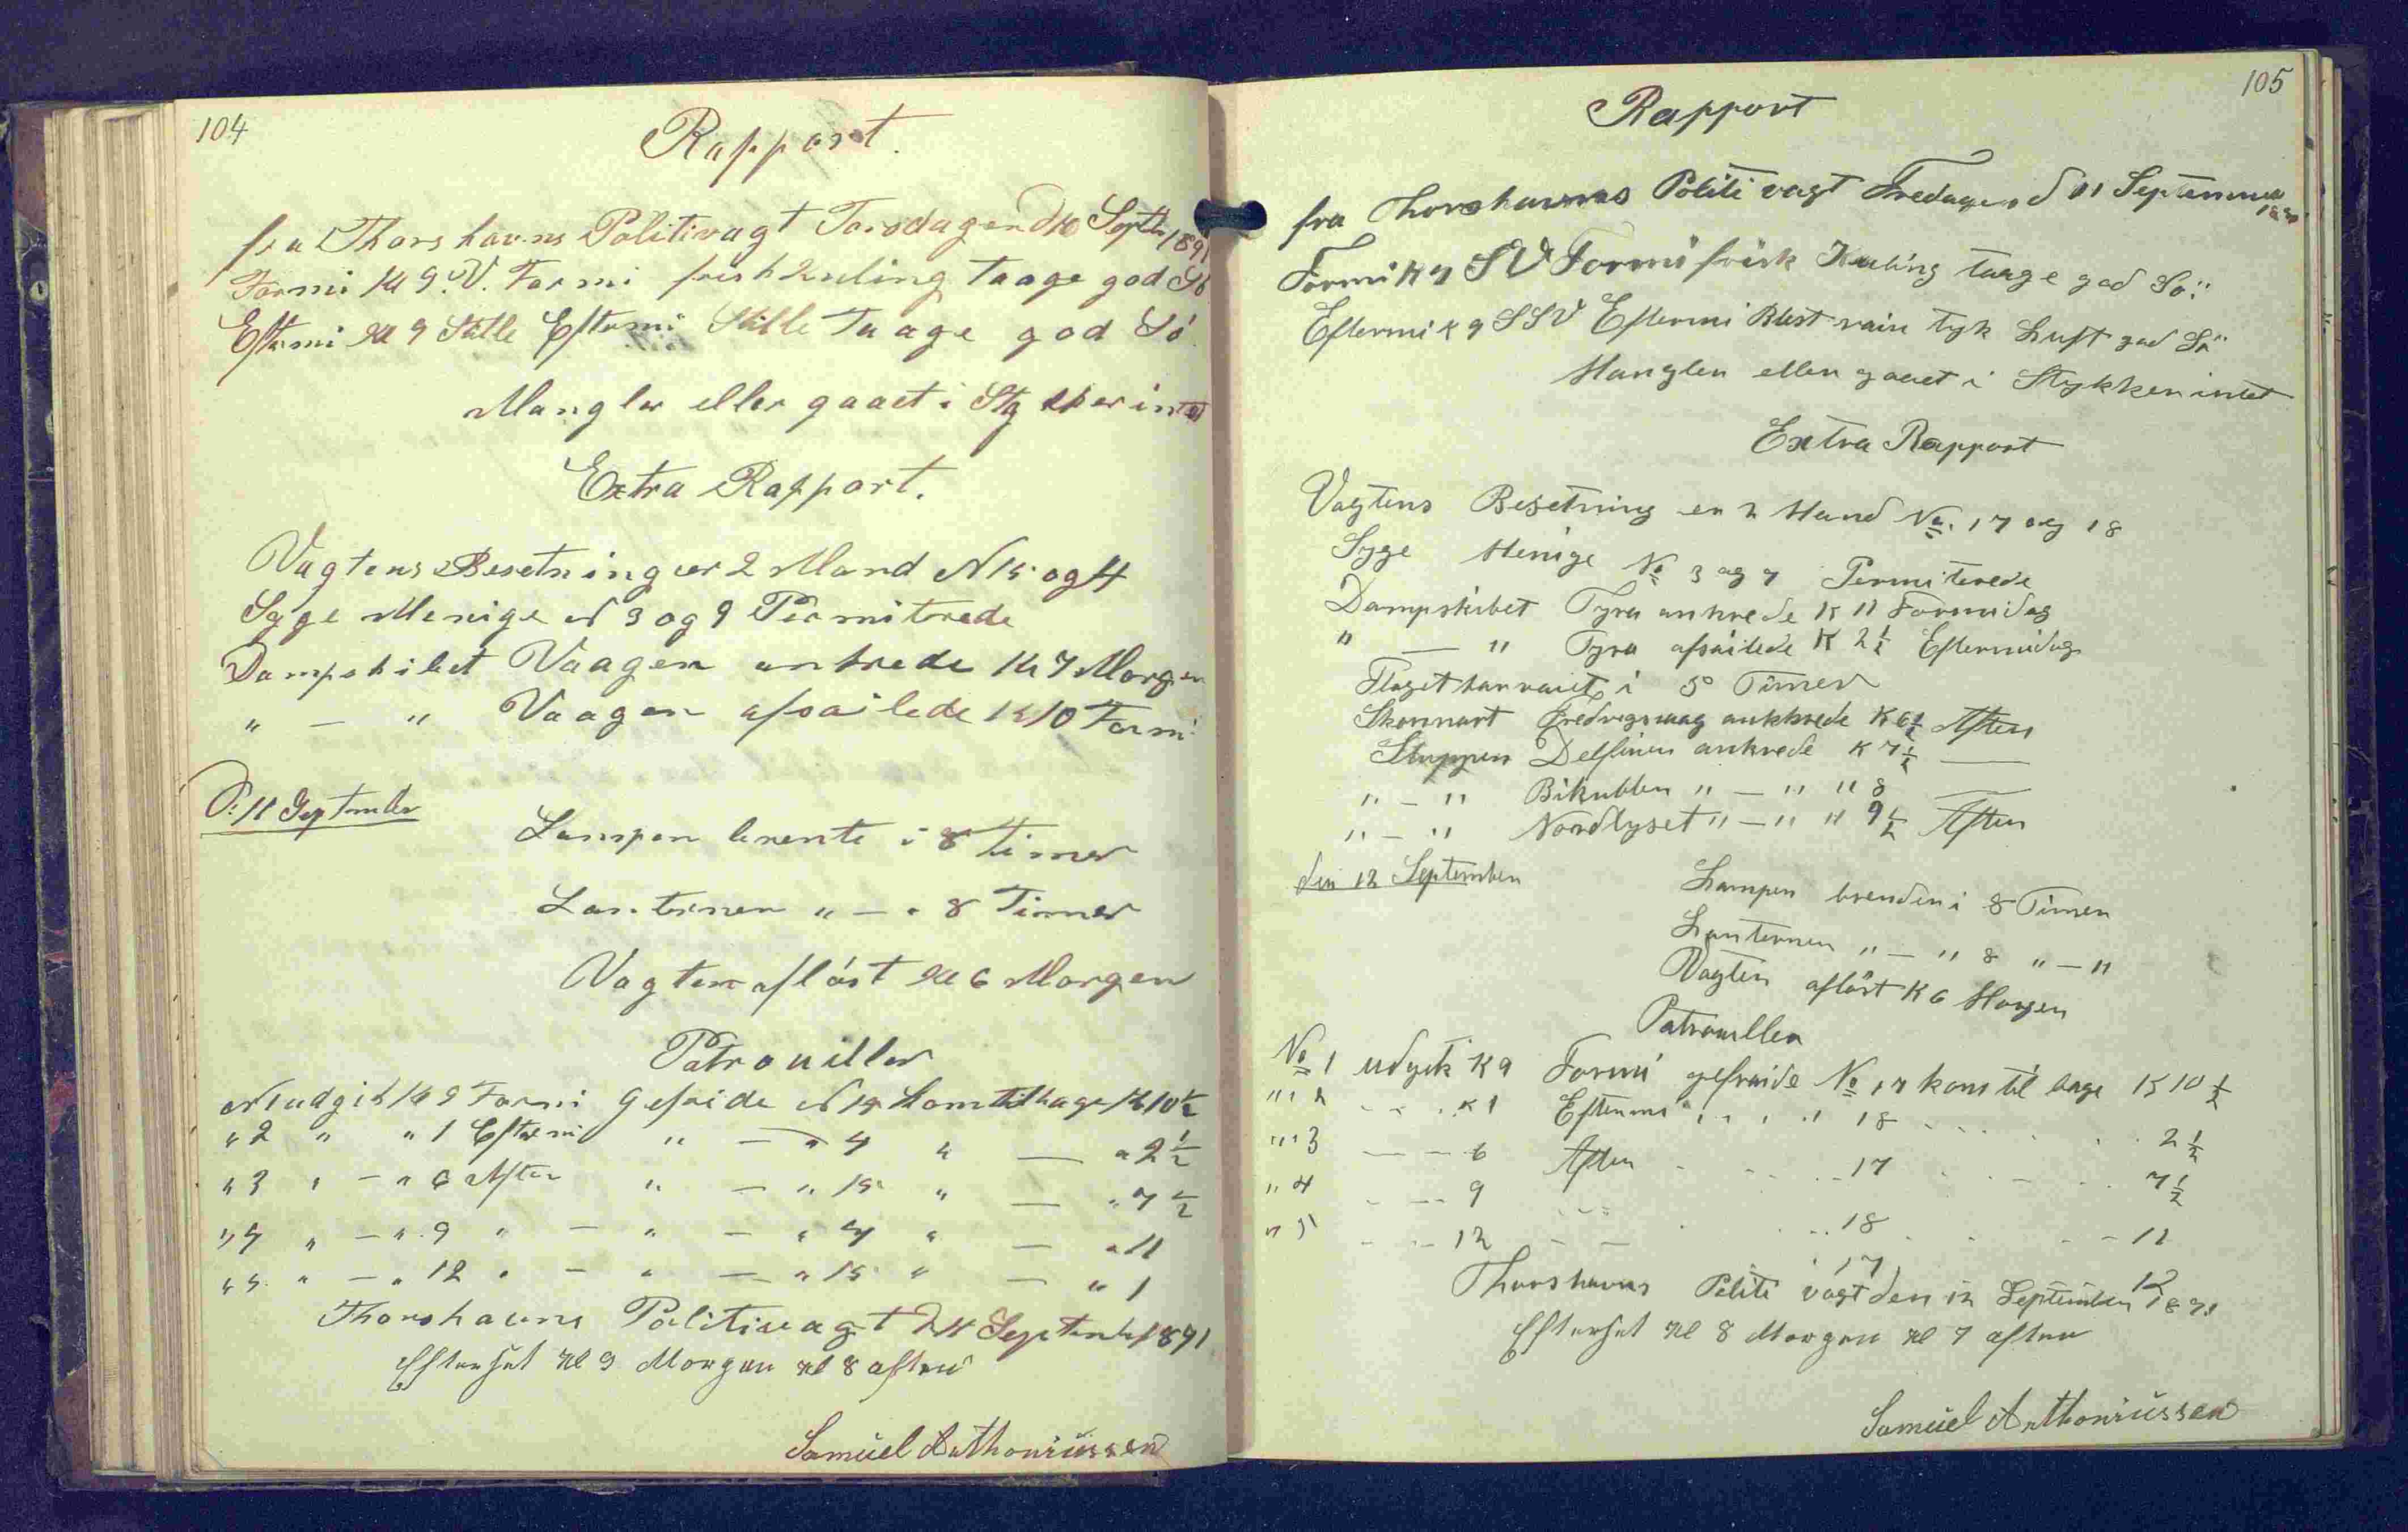 104
Rapport.
fra Thorshavns Politivagt Torsdagen d 10 Septbr 1891
Formi Kl 9. V. Formi frisk Kuling Taage god Sö
Eftermi Kl 9 Stille Eftermi Stille Taage god Sö
Mangler eller gaaet i Stykker intet
Extra Rapport.
Vagtens Besetning er 2 Mand N 15 og 4
Syge Menige N 3 og 9 Permitrede
Dampskibet Vaagen ankrede Kl 7 Morgen
" — " Vaagen afsailede Kl 10 Formi
D: 11 September
Lampen brente i 8 Timer
Lanternen " — " 8 Timer
Vagten aflöst Kl 6 Morgen
Patrouiller
N 1 udgik Kl 9 Formi Gefride N 15 Kom tilbage Kl 10 1/2
" 2 " " 1 Eftermi " — " 4 " — " 2 1/2
" 3 " — " 6 Aften " — " 15 " — " 7 1/2
" 4 " — " 9 " — " — " 4 " — " 11
" 5 " — " 12 " — " — " 15 " — " 1
Thorshavns Politivagt d 11 September 1891
Efterset Kl 9 Morgen Kl 8 aften
Samuel Anthoniussen
105
Rapport
fra Thorshavnes Politi vagt Fredagen d 11 September
Formi K 9 SV Formi frisk Kuling taage god Sö
Eftermi K 9 SSV Eftermi Blest rain tyk Luft god Sö
Manglen eller gaaet i Stykker intet
Extra Rapport
Vagtens Besetning er 2 Mand No. 17 og 18
Syge Menige No 3 og 9 Permiterede
Dampskibet Tyra ankrede K 11 Formidag
" — " Tyra afsailede K 2 1/2 Eftermidag
Flaget har vaiet i 5 Timer
Skonnart ankkrede K 6 1/2 Aften
Sluppen Delfinen ankrede K 7 1/2 —
" — " Bikubben " — " " 8 —
" — " Nordlyset " — " " 9 1/2 Aften
den 12 September
Lampen brenden i 8 Timer
Lanternen " — " 8 " — "
Vagten aflöst K 6 Morgen
Patrouller
No 1 udgik K 9 Formi gefraide No 17 kom til bage K 10 1/2
" " 2 . . . K 1 Eftermi . . . " 18 . . . . . 2 1/2
" " 3 — — 6 Aften . . . 17 . . . . 7 1/2
" 4 - - - 9 - - - . . . 18 . . - - 11
" 5 - - 12 — — . 17 12
Thorshavns Politi vagt den 12 September 1891
Efterset Kl 8 Morgen Kl 7 aften
Samuel Anthoniussen